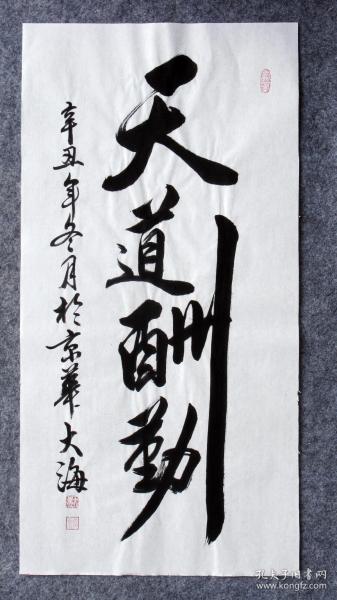 天道酬勤
辛丑年冬月於京華大海
孔夫子旧书网
www.kongfz.com